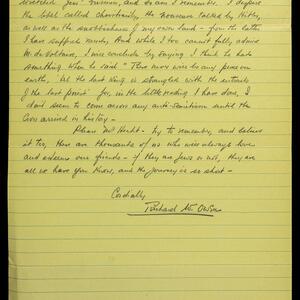 wretched Jew" version, and so am I remember. I despise
the label called Christianity, the nonsense talked by Hitler,
as well as the snobbishness of my own land - from the latter
I have suffered much. And while I too cannot fully admire
M. de Voltaire, I will conclude by saying I think he had
something when he said "There will never be any peace on
earth, 'til the last King is strangled with the entrails
of the last priest" for, in the little reading I have done, I
don't seem to come across any anti-semitism until the
Cross arrived in history -
Please Mr Hecht - try to remember, and believe
it too, there are thousands of us who will always love
and esteem our friends - if they are Jews or not, they are
all we have you know, and the journey is so short -
Cordially
Richard W.